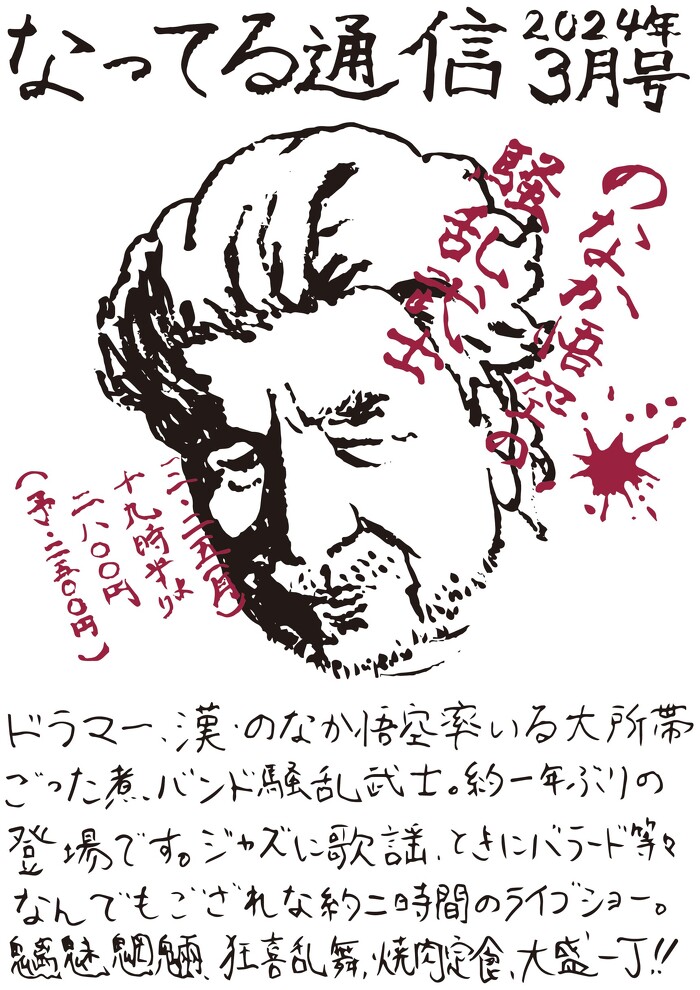 なってる通信
2024年
3月号
のなか悟空の
騒乱武士
三・二五(月)
十九時半より
二八〇〇円
(予・二五〇〇円)
ドラマー、漢・のなか悟空率いる大所帯
ごった煮、バンド騒乱武士。約一年ぶりの
登場です。ジャズに歌謡、ときにバラード等々
なんでもござれな約二時間のライブショー。
魑魅魍魎、狂喜乱舞、焼肉定食、大盛一丁!!